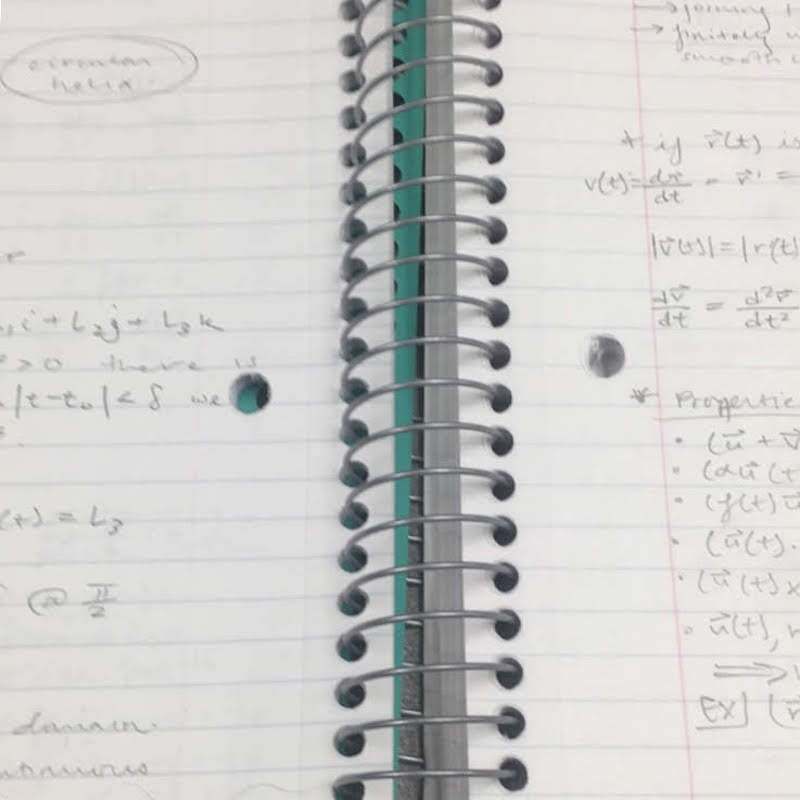 circular
helix.
i + L₂j + L₃k
> 0 there is
|t-t₀| < δ we
(t) = L₃
@ π/2
domain.
→ joining
→ finitely
smooth
* if r⃗(t) is
v(t) = dr/dt = r⃗' =
|v⃗(t)| = |r'(t)
dv⃗/dt = d²r⃗/dt²
* Properties
• (u⃗ + v⃗
• (αu⃗(t
• (f(t)u⃗
• (u⃗(t).
• (u⃗(t) x
• u⃗(t),
⟹
EX] (r⃗